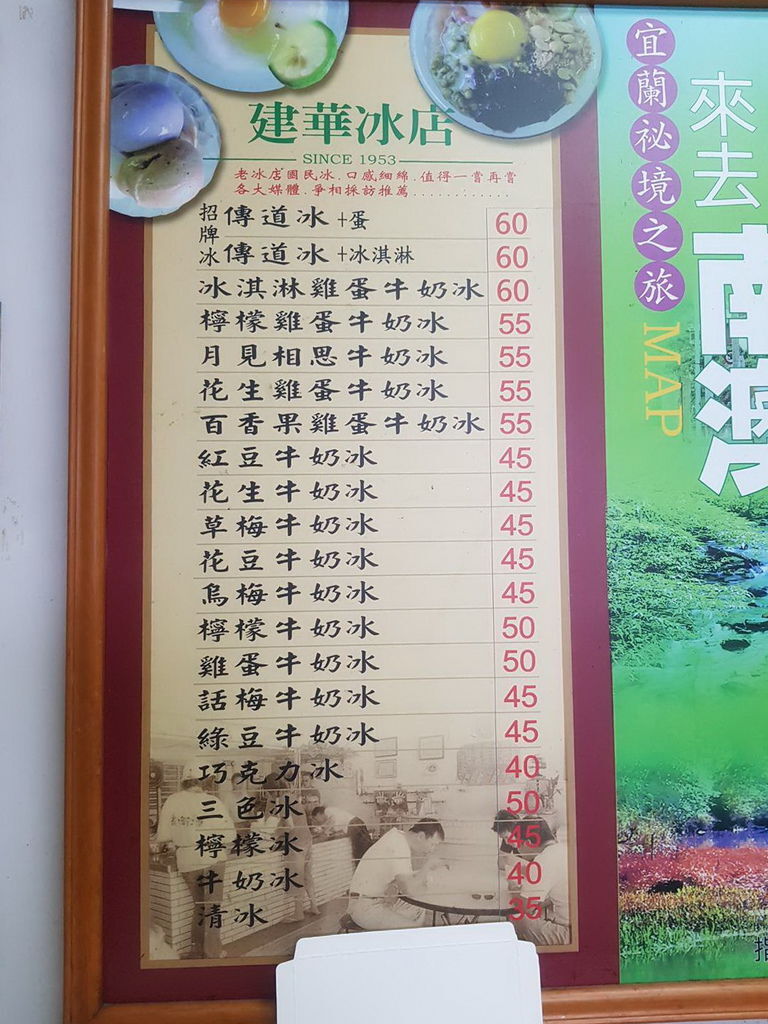 建華冰店
SINCE 1953
老冰店國民冰.口感細綿.值得一嘗再嘗
各大媒體.爭相採訪推薦............
招牌冰
傳道冰+蛋 60
傳道冰+冰淇淋 60
冰淇淋雞蛋牛奶冰 60
檸檬雞蛋牛奶冰 55
月見相思牛奶冰 55
花生雞蛋牛奶冰 55
百香果雞蛋牛奶冰 55
紅豆牛奶冰 45
花生牛奶冰 45
草莓牛奶冰 45
花豆牛奶冰 45
烏梅牛奶冰 45
檸檬牛奶冰 50
雞蛋牛奶冰 50
話梅牛奶冰 45
綠豆牛奶冰 45
巧克力冰 40
三色冰 50
檸檬冰 45
牛奶冰 40
清冰 35
宜蘭祕境之旅
MAP
來去
南